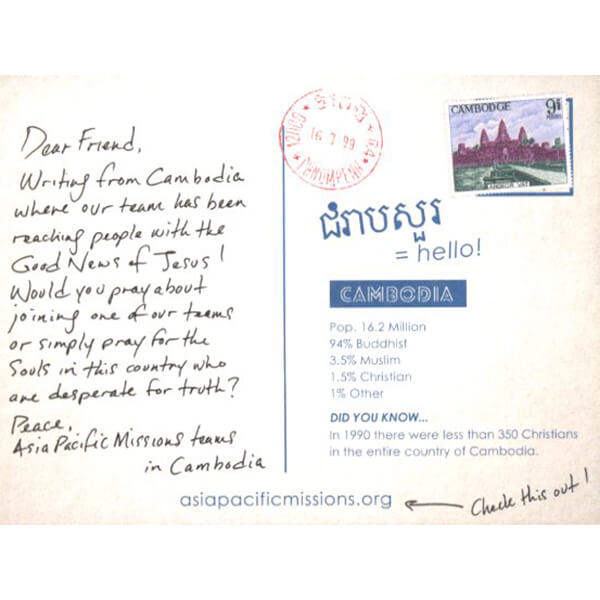 Dear Friend,
Writing from Cambodia
where our team has been
reaching people with the
Good News of Jesus!
Would you pray about
joining one of our teams
or simply pray for the
Souls in this country who
are desperate for truth?
Peace,
Asia Pacific Missions teams
in Cambodia
16 7 99
PHNOMPENH
CAMBODGE
9
ANGKOR VAT
ជំរាបសួរ
= hello!
CAMBODIA
Pop. 16.2 Million
94% Buddhist
3.5% Muslim
1.5% Christian
1% Other
DID YOU KNOW...
In 1990 there were less than 350 Christians
in the entire country of Cambodia.
asiapacificmissions.org
Check this out!